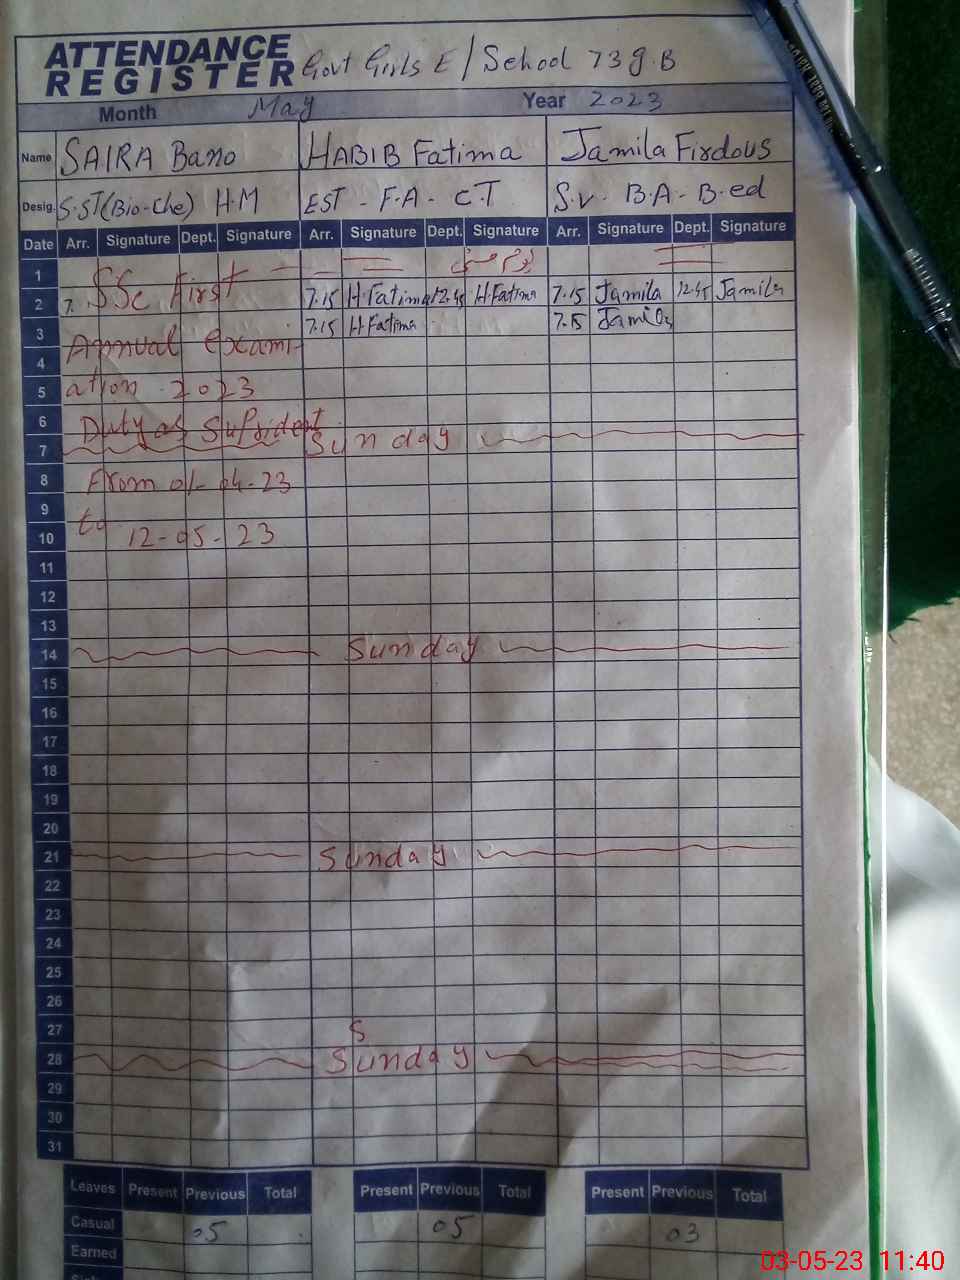 ATTENDANCE REGISTER Govt Girls E/School 73 g.B
Month May Year 2023
Name SAIRA Bano HABIB Fatima Jamila Firdous
Desig. S.ST(Bio-Che) H.M EST - F.A - C.T S.V - B.A - B.ed
Date Arr. Signature Dept. Signature Arr. Signature Dept. Signature Arr. Signature Dept. Signature
1 SSc First
2 7. 7.15 H.Fatima 12.45 H Fatima 7.15 Jamila 12.45 Jamila
3 Annual Exami- 7.15 H Fatima 7.15 Jamila
4
5 ation 2023
6 Duty as
7 Sunday
8 From 01-04-23
9 to
10 12-05-23
11
12
13
14 Sunday
15
16
17
18
19
20
21 Sunday
22
23
24
25
26
27 S
28 Sunday
29
30
31
Leaves Present Previous Total Present Previous Total Present Previous Total
Casual 05 05 03
Earned
03-05-23 11:40